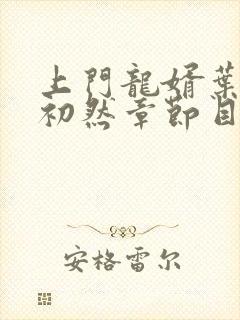 上門龍婿葉
初然章節目
安格雷尔